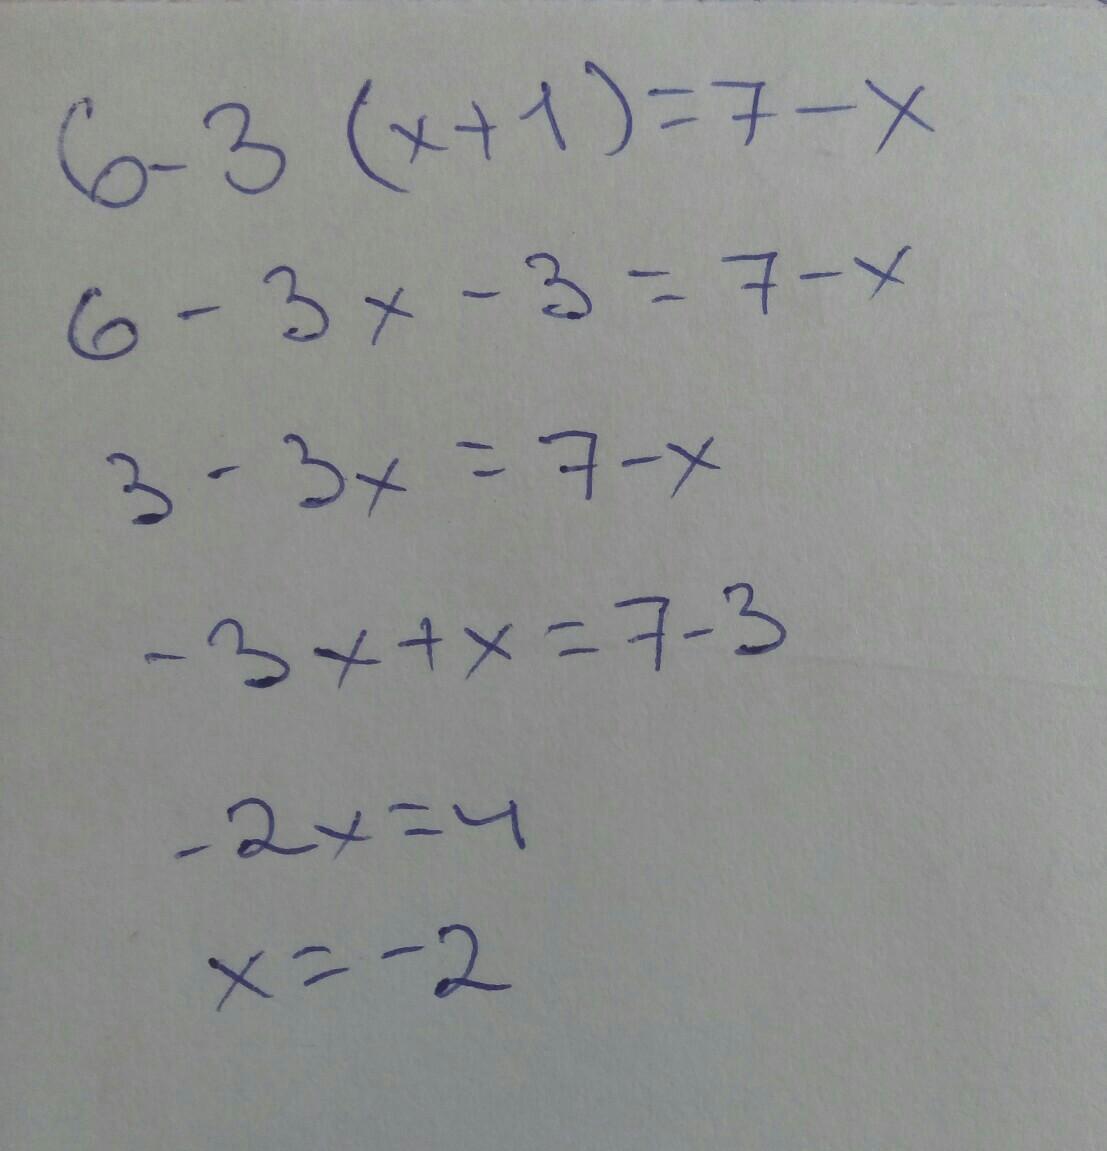 6-3 (x+1)=7-x
6 - 3x - 3 = 7-x
3 - 3x = 7-x
-3x+x=7-3
-2x=4
x=-2